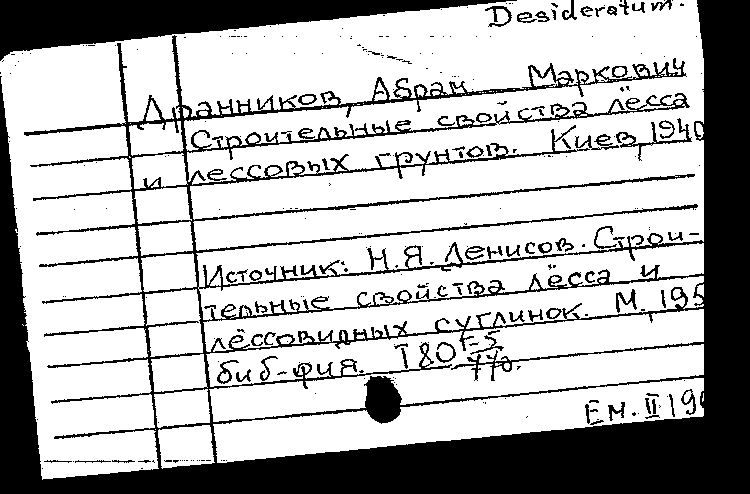 Desideratum.
Дранников, Абрам Маркович
Строительные свойства лёсса
и лессовых грунтов. Киев, 1940
Источник: Н.Я. Денисов. Строи-
тельные свойства лёсса и
лёссовидных суглинок. М., 195
биб-фия. Т80 E5
770.
Ем. II 19